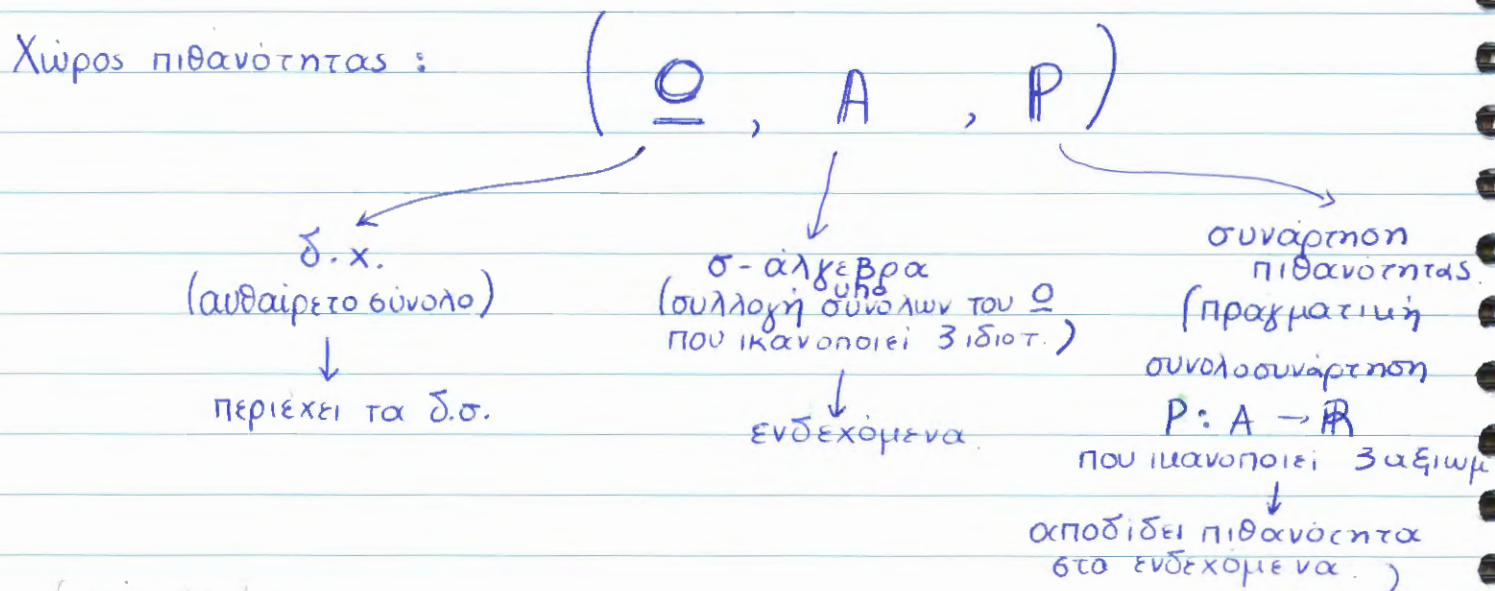 Χώρος πιθανότητας : ( Ο , Α , P )
δ.χ.
(αυθαίρετο σύνολο)
περιέχει τα δ.σ.
σ-άλγεβρα
(συλλογή υποσυνόλων του Ο
που ικανοποιεί 3 ιδιοτ.)
ενδεχόμενα
συνάρτηση
πιθανότητας
(πραγματική
συνολοσυνάρτηση
P: A → ℝ
που ικανοποιεί 3 αξιωμ
αποδίδει πιθανότητα
στα ενδεχόμενα.)